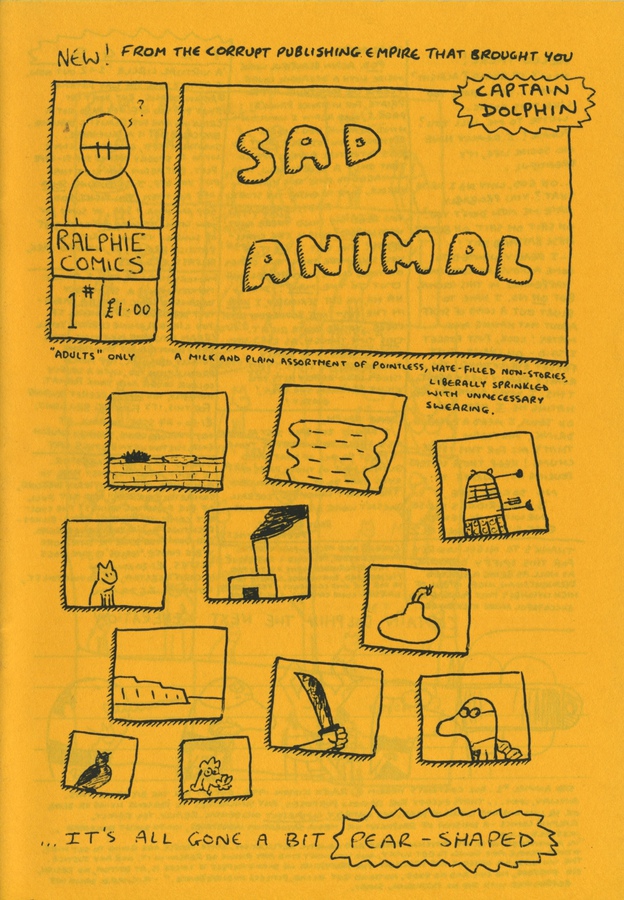 NEW! FROM THE CORRUPT PUBLISHING EMPIRE THAT BROUGHT YOU
CAPTAIN
DOLPHIN
?
SAD
ANIMAL
RALPHIE
COMICS
1# £1.00
"ADULTS" ONLY
A MILK AND PLAIN ASSORTMENT OF POINTLESS, HATE-FILLED NON-STORIES,
LIBERALLY SPRINKLED
WITH UNNECESSARY
SWEARING.
...IT'S ALL GONE A BIT PEAR-SHAPED